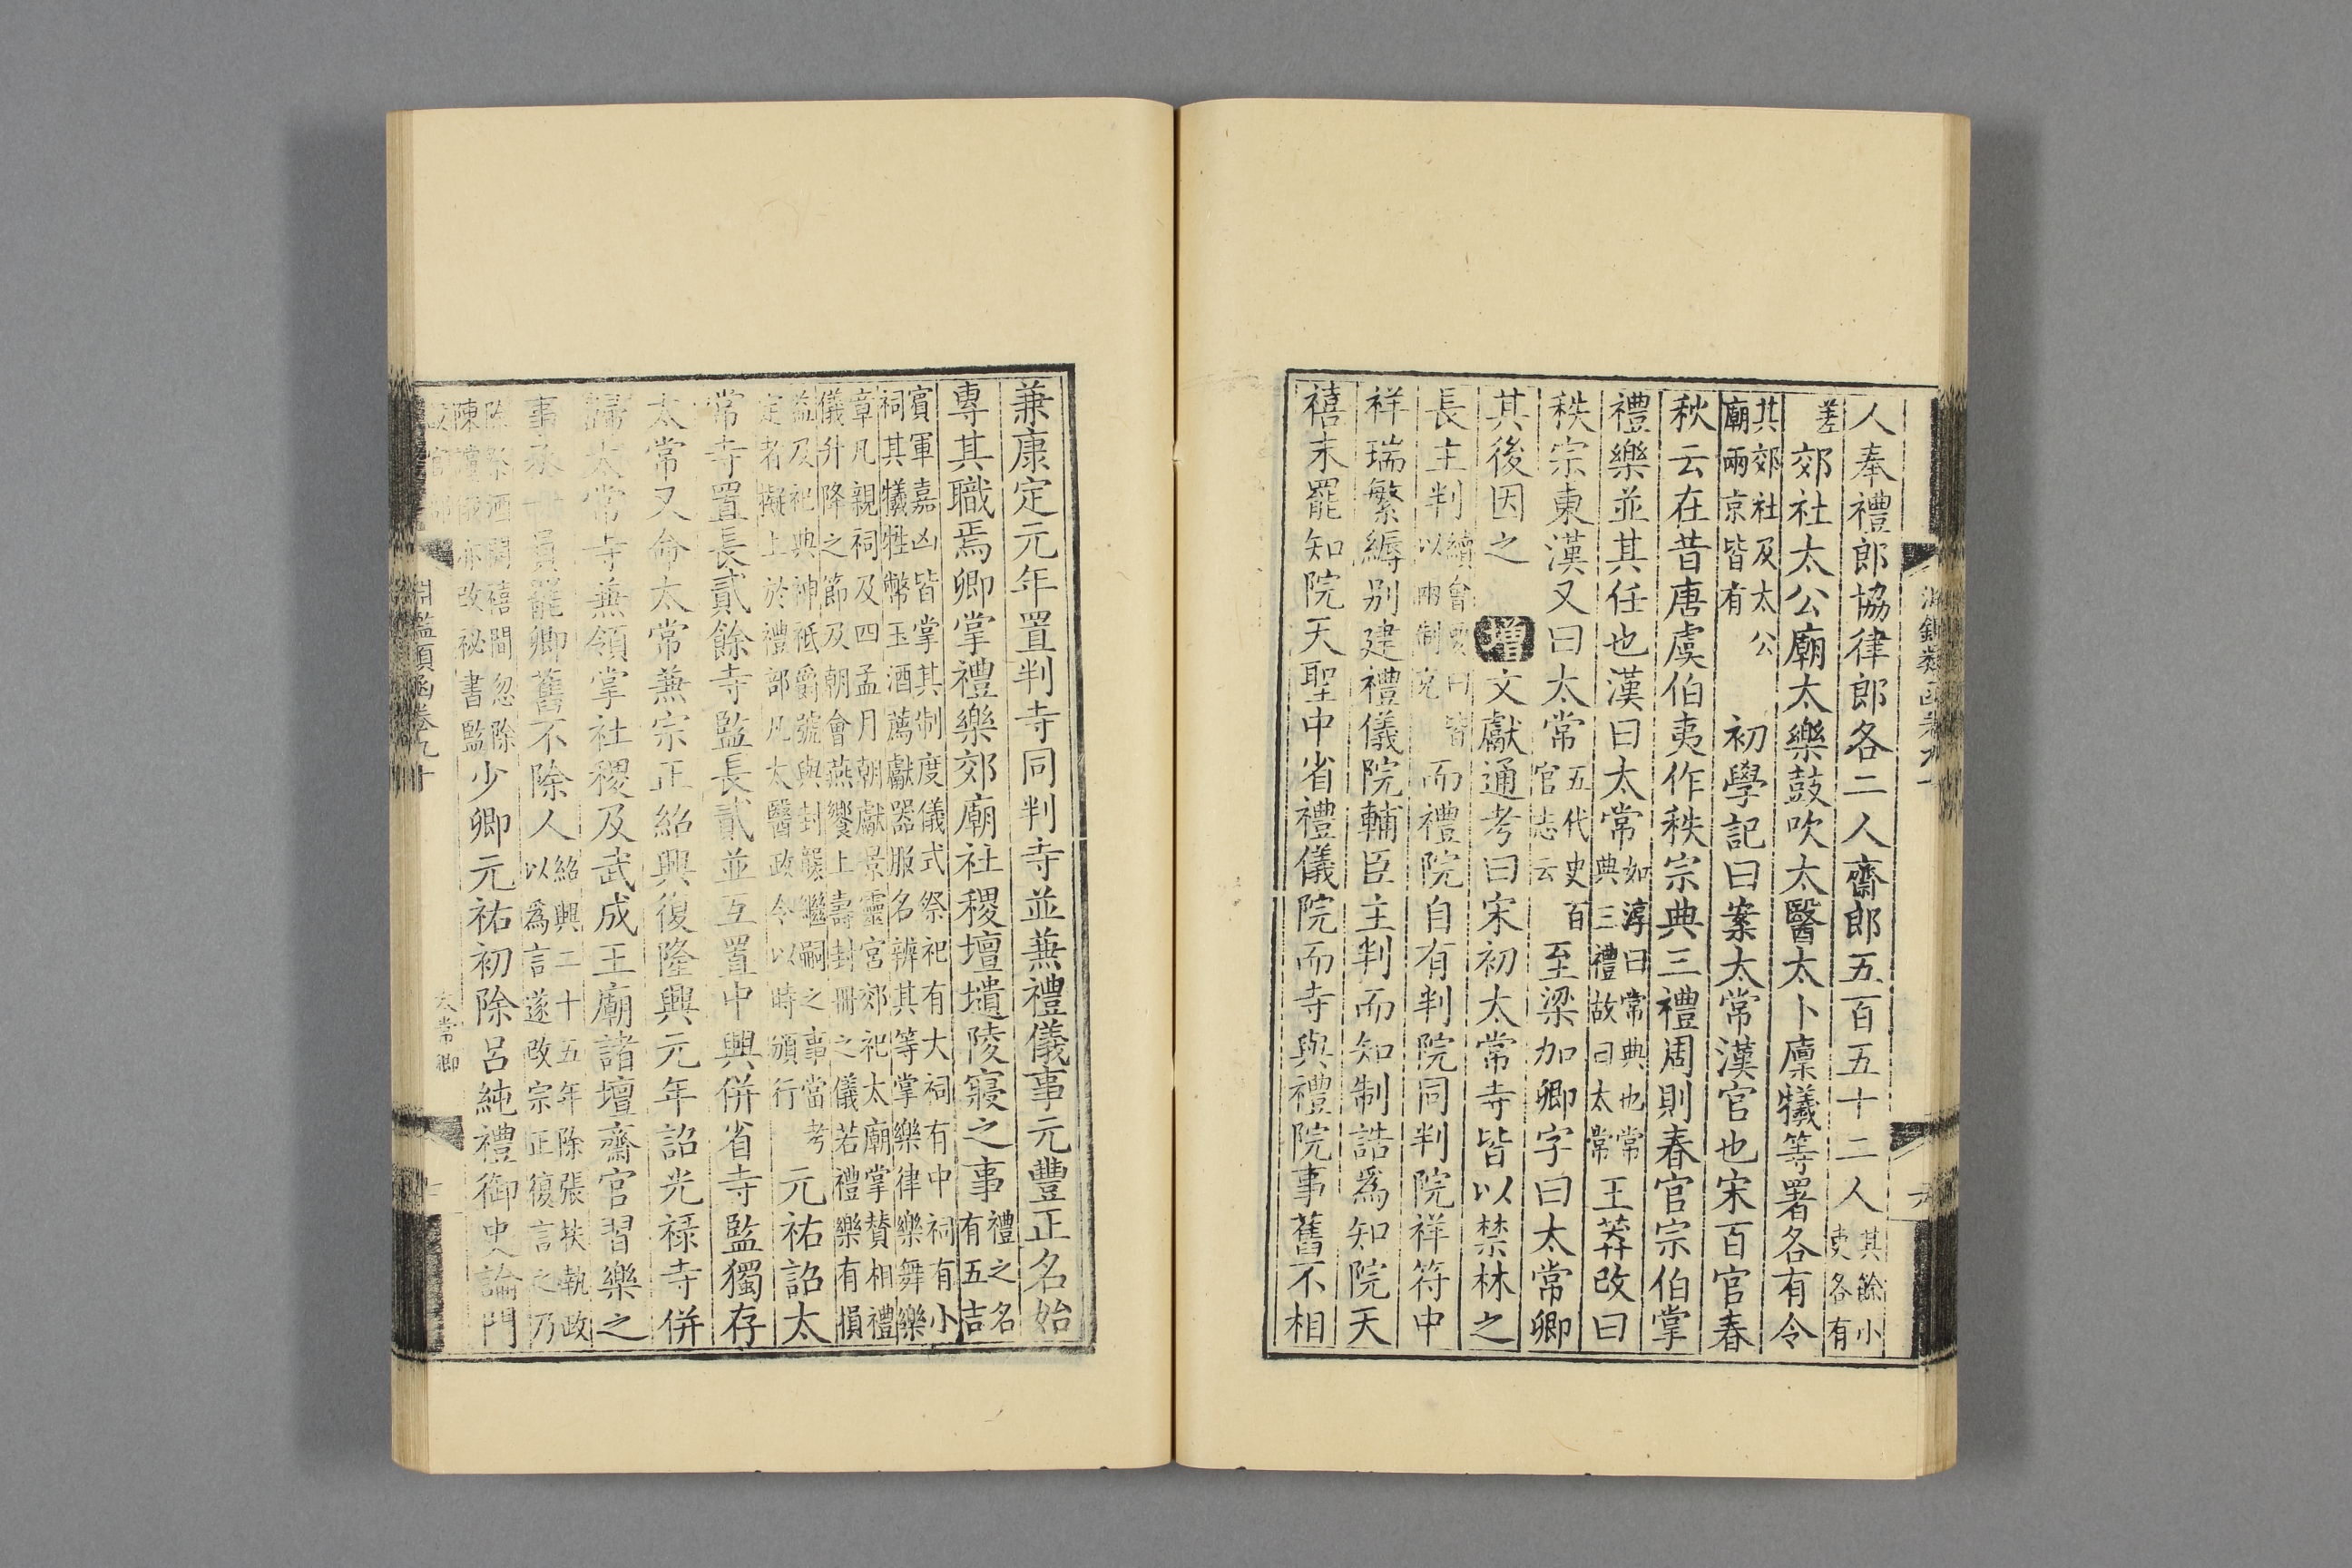 人奉禮郎協律郎各二人齋郎五百五十二人其餘小吏各有
差郊社太公廟太樂鼓吹太醫太卜廩犧等署各有令
其郊社及太公廟兩京皆有初學記曰案太常漢官也宋百官春
秋云在昔唐虞伯夷作秩宗典三禮周則春官宗伯掌
禮樂並其任也漢曰太常如淳曰常典也常典三禮故曰太常王莽改曰
秩宗東漢又曰太常五代史百官志云至梁加卿字曰太常卿
其後因之增文獻通考曰宋初太常寺皆以禁林之
長主判續會要曰皆以兩制充而禮院自有判院同判院祥符中
祥瑞繁縟別建禮儀院輔臣主判而知制誥爲知院天
禧末罷知院天聖中省禮儀院而寺與禮院事舊不相
兼康定元年置判寺同判寺並兼禮儀事元豐正名始
專其職焉卿掌禮樂郊廟社稷壇壝陵寢之事禮之名有五吉
賓軍嘉凶皆掌其制度儀式祭祀有大祠有中祠有小祠其犧牲幣玉酒薦獻器服名辨其等掌樂律樂舞樂
章凡親祠及四孟月朝獻景靈宮郊祀太廟掌贊相禮儀升降之節及朝會燕饗上壽封冊之儀若禮樂有損
益及祀典神祇爵號與封襲繼嗣之事當考定者擬上於禮部凡太醫政令以時頒行元祐詔太
常寺置長貳餘寺監長貳並互置中興併省寺監獨存
太常又命太常兼宗正紹興復隆興元年詔光祿寺併
歸太常寺兼領掌社稷及武成王廟諸壇齋官習樂之
事丞卅員罷卿舊不除人紹興二十五年除張扶執政以爲言遂改宗正復言之乃
除祭酒開禧間忽除陳壇俄亦改祕書監少卿元祐初除呂純禮御史論門
淵鑑類函卷九十
太常卿